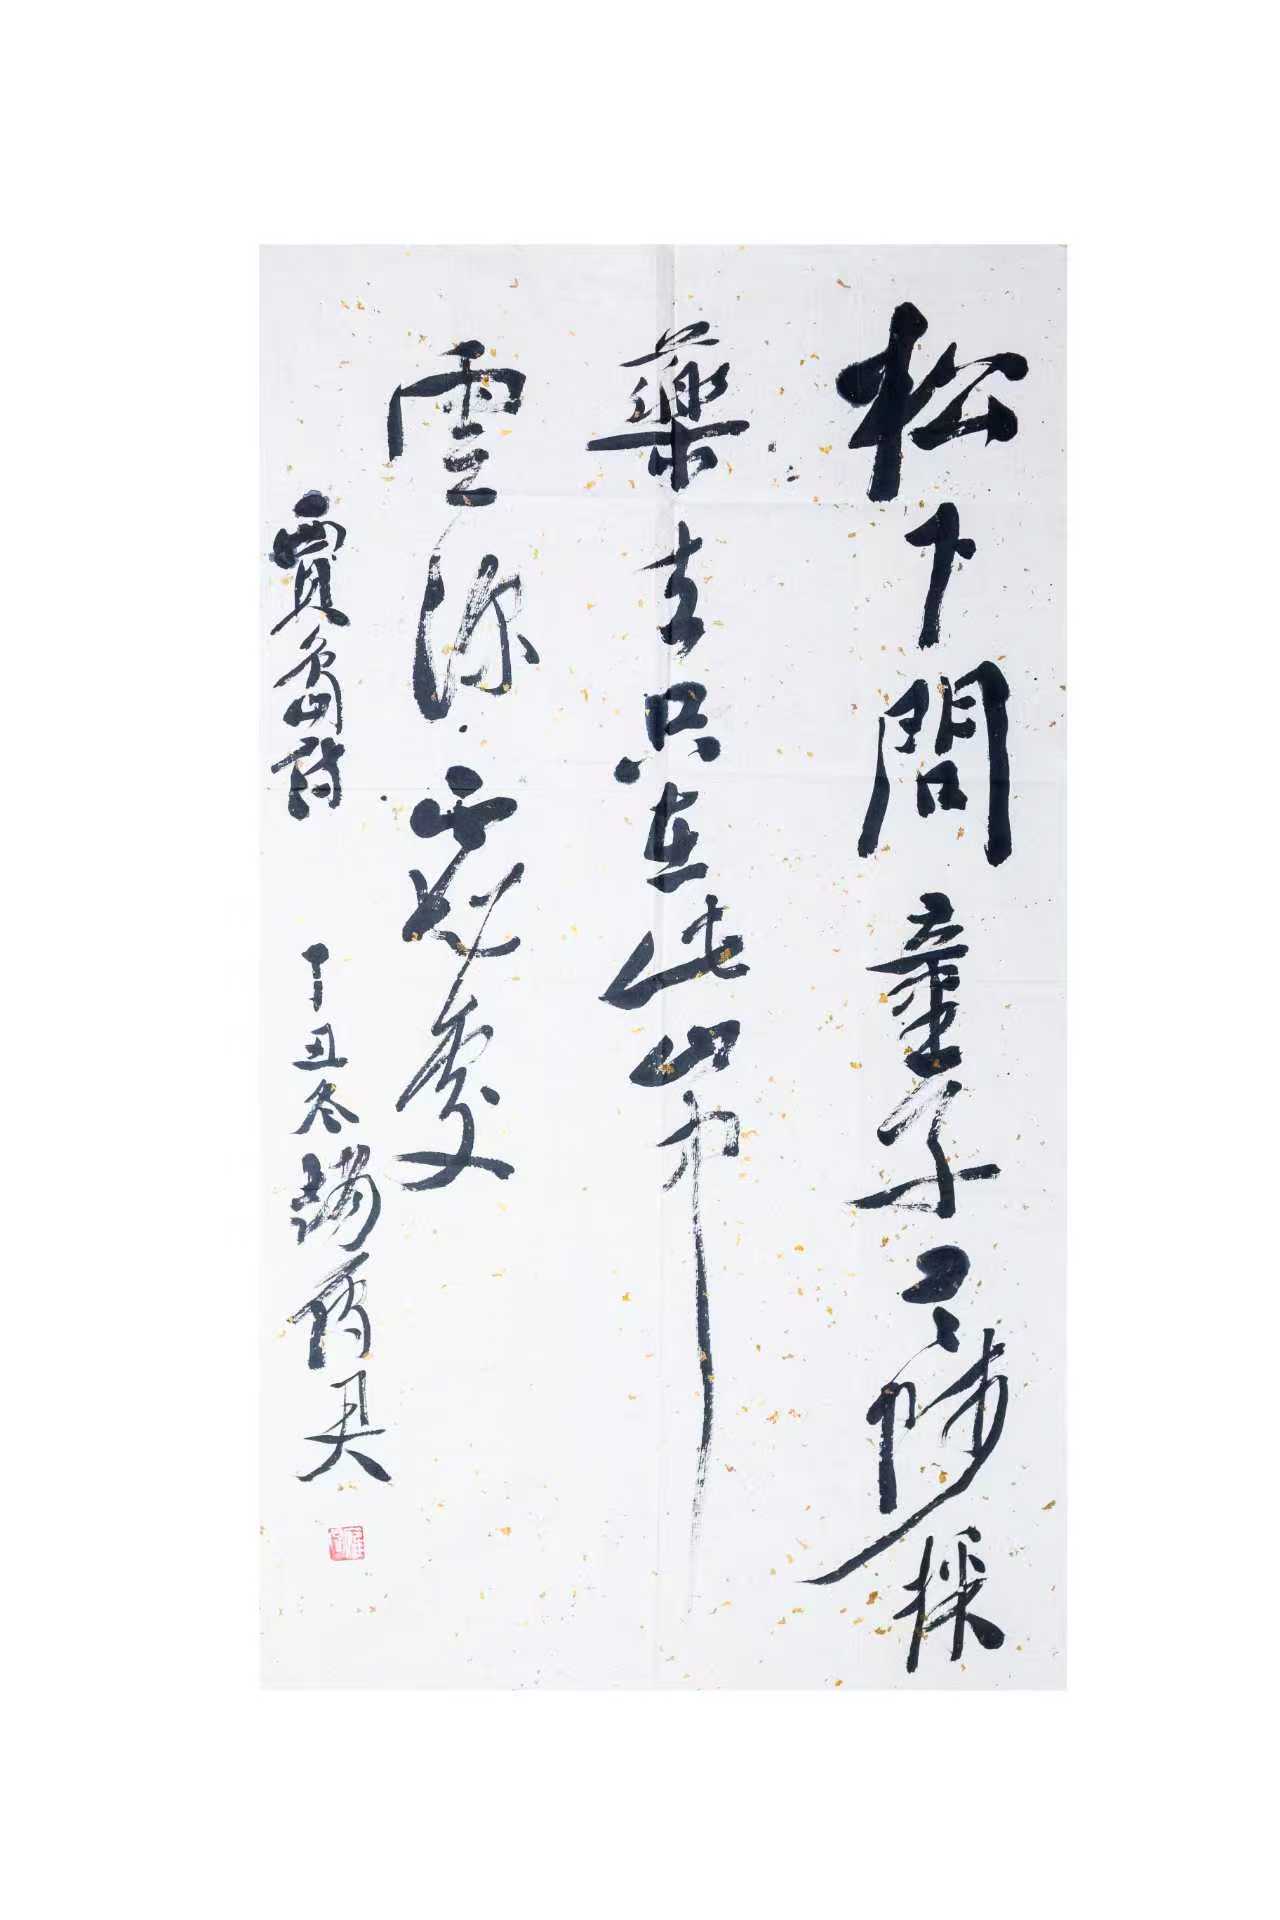 松下問童子言師採
藥去只在此山中
雲深不知處
賈島詩 丁丑冬